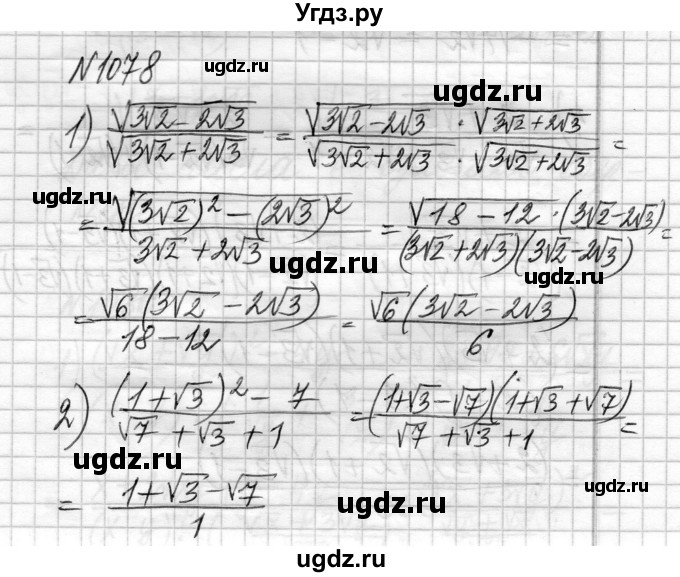 Угдз.ру
№1078
ugdz.ru
ugdz.ru
1) √(3√2 - 2√3) / √(3√2 + 2√3) = √(3√2 - 2√3) · √(3√2 + 2√3) / √(3√2 + 2√3) · √(3√2 + 2√3) =
ugdz.ru
ugdz.ru
= √((3√2)² - (2√3)²) / 3√2 + 2√3 = √(18 - 12) · (3√2 - 2√3) / (3√2 + 2√3)(3√2 - 2√3) =
ugdz.ru
ugdz.ru
= √6(3√2 - 2√3) / 18 - 12 = √6(3√2 - 2√3) / 6
ugdz.ru
ugdz.ru
2) (1 + √3)² - 7 / √7 + √3 + 1 = (1+√3 - √7)(1+√3 + √7) / √7 + √3 + 1 =
ugdz.ru
ugdz.ru
= 1 + √3 - √7 / 1
ugdz.ru
ugdz.ru
ugdz.ru